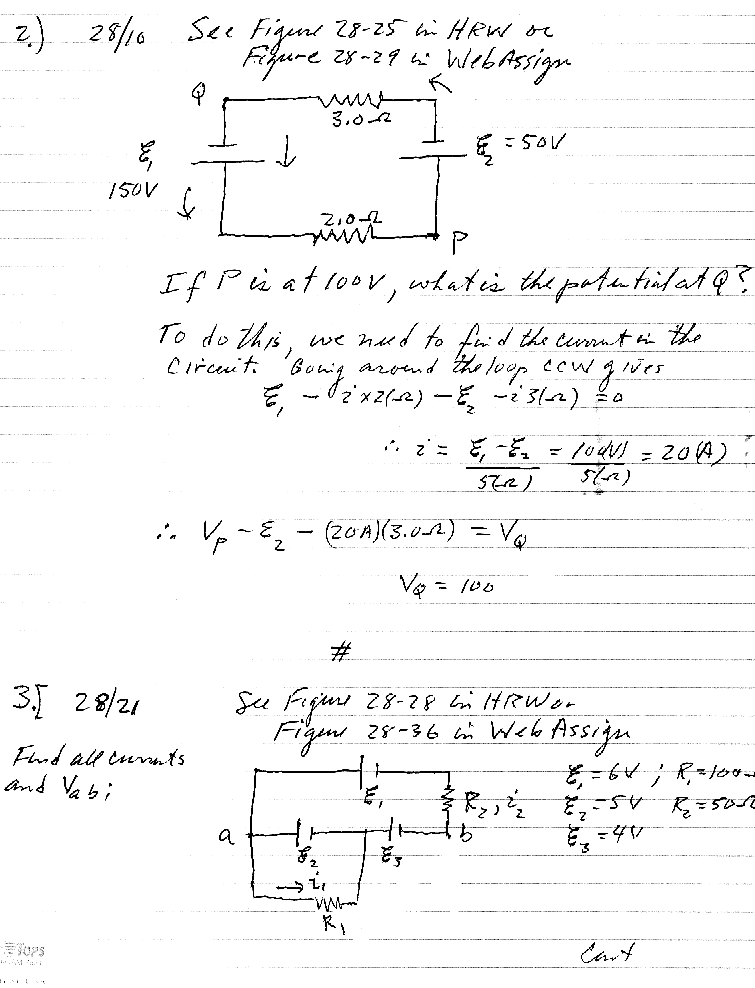 2.) 28/10 See Figure 28-25 in HRW or
Figure 28-29 in WebAssign
Q
3.0Ω
ℰ₁
150V
ℰ₂ = 50V
2.0Ω
P
If P is at 100V, what is the potential at Q?
To do this, we need to find the current in the
circuit. Going around the loop ccw gives
ℰ₁ - i×2(Ω) - ℰ₂ - i3(Ω) = 0
∴ i = (ℰ₁ - ℰ₂)/5(Ω) = 100(V)/5(Ω) = 20(A)
∴ Vp - ℰ₂ - (20A)(3.0Ω) = VQ
VQ = 100
#
3.[ 28/21 See Figure 28-28 in HRW or
Figure 28-36 in WebAssign
Find all currents
and Vab;
ℰ₁ = 6V ; R₁ = 100Ω
ℰ₂ = 5V R₂ = 50Ω
ℰ₃ = 4V
ℰ₁
R₂, i₂
a
b
ℰ₂
ℰ₃
→ i₁
R₁
TOPS
Cont